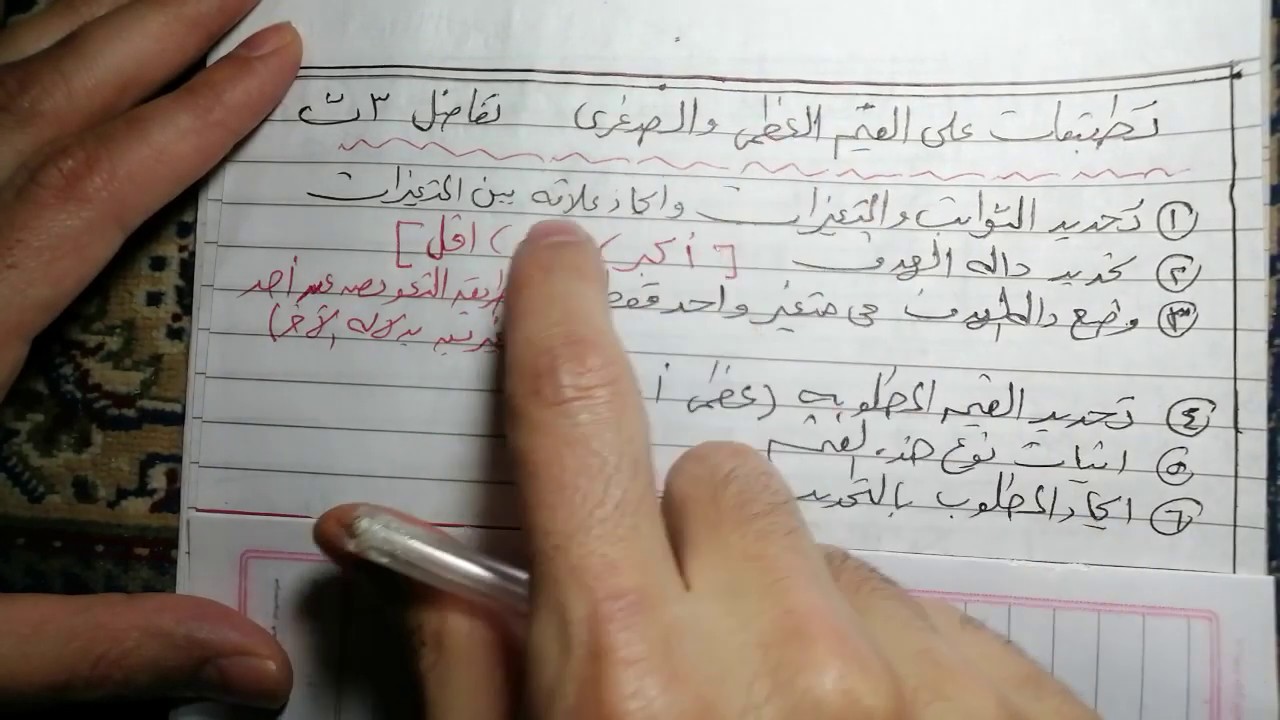 تطبيقات على القيم العظمى والصغرى تفاضل ٣ث
① تحديد الثوابت والمتغيرات وايجاد علاقه بين المتغيرات
② تحديد داله الهدف [أكبر ( ) اقل]
③ وضع داله الهدف فى متغير واحد فقط التعويض عن أحد
بدلاله الآخر)
④ تحديد القيم المطلوبه (عظمى أ
⑤ اثبات نوع هذه القيم
⑥ ايجاد المطلوب بالتحديد